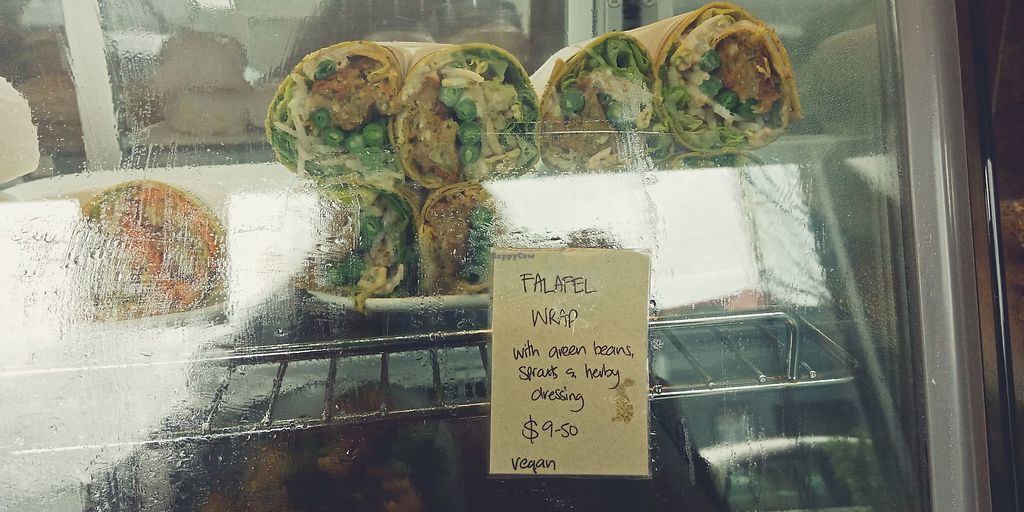 HappyCow
FALAFEL
WRAP
with green beans,
sprouts & herby
dressing
$9-50
vegan